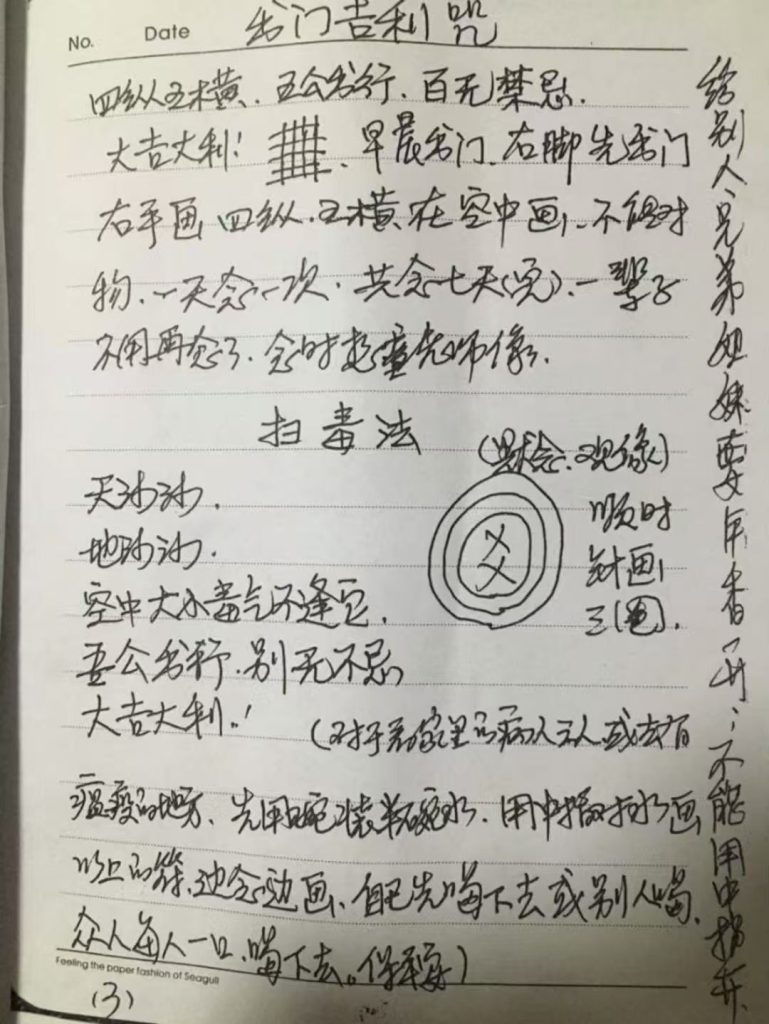 No. Date 出门吉利咒
四纵五横、五公出行、百无禁忌.
大吉大利! 、早晨出门、右脚先出门
右手画四纵、五横、在空中画、不得对
物、一天念一次.共念七天(完).一辈子
不用再念了、念时想童先师像.
扫毒法
(默念、观像)
天沙沙.
地沙沙.
空中大小毒气不逢它.
吾公出行、别无不忌
大吉大利.!
顺时
针画
三(圈).
(对于去家里的病人、或去有
瘟疫的地方、先用碗装半碗水、用中指对水画
以上的符、边念边画、自己先喝下去或别人喝、
众人每人一口、喝下去。保平安)
Feeling the paper fashion of Seagull
(3)
给别人、兄弟姐妹要用香开;不能用中指开.